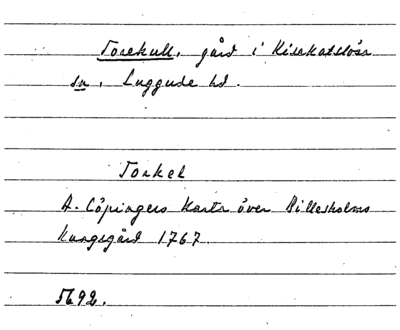 Torekull, gård i Kisekatslösa
sn, Luggude hd.
Torkel
A. Cöpingers karta över Billesholms
Kungsgård 1767.
5692.